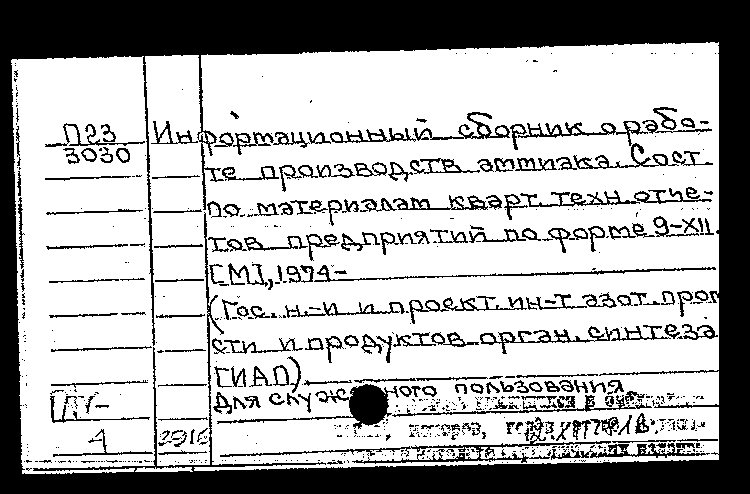 П23 Информационный сборник о рабо-
3030
те производств аммиака. Сост.
по материалам кварт. техн. отче-
тов предприятий по форме 9-XII.
[М], 1974-
(Гос. н.-и и проект. ин-т азот. пром
сти и продуктов орган. синтеза
ГИАП).
Для служебного пользования
4 2916